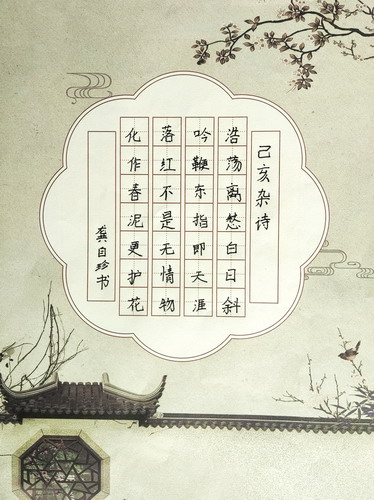 己亥杂诗
浩荡离愁白日斜
吟鞭东指即天涯
落红不是无情物
化作春泥更护花
龚自珍书